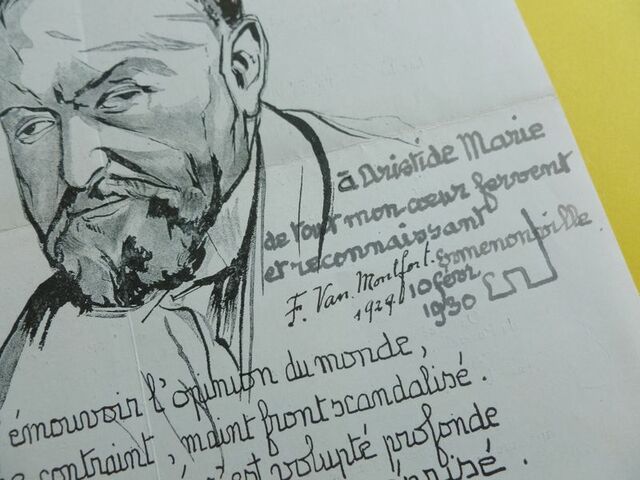 à Aristide Marie
de tout mon cœur fervent
et reconnaissant
F. Van Montfort. Ermenonville.
1929. 10 févr
1930
émouvoir l'opinion du monde,
contraint, maint front scandalisé.
est volupté profonde